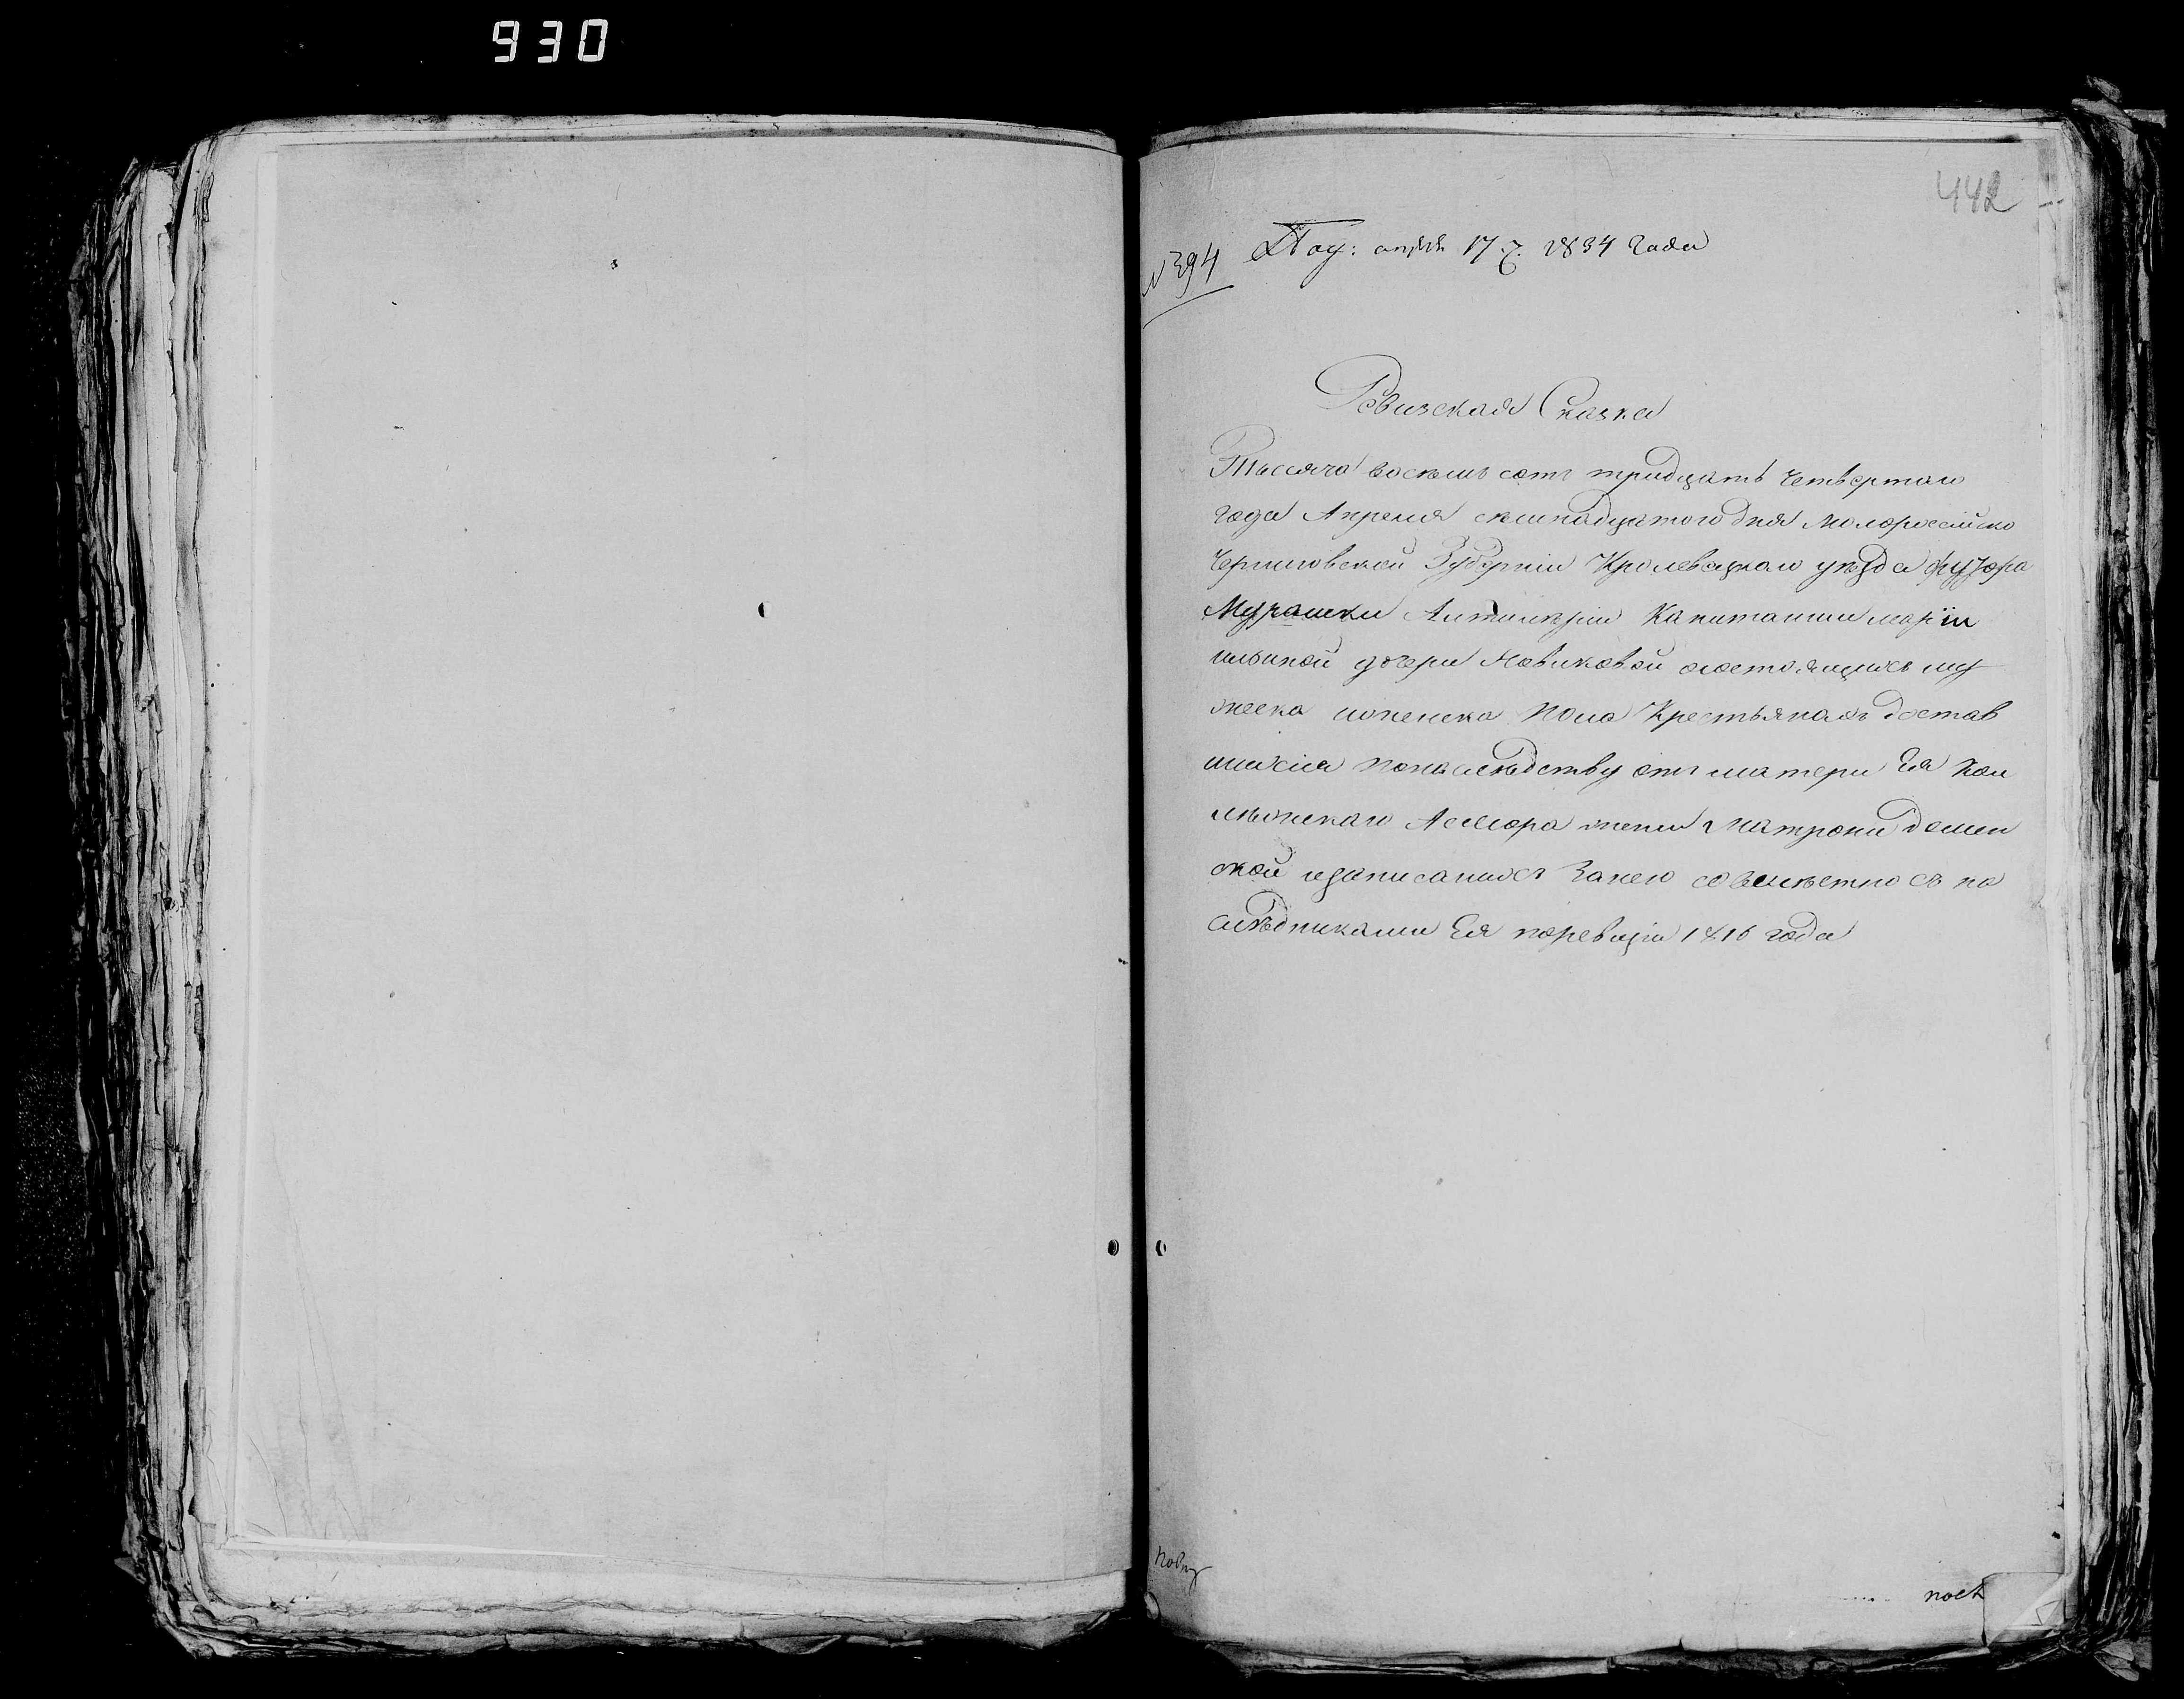 930
442
№394
Пол: апреля 17 д. 1834 года
Ревизская Сказка
Тысяча восемь сотъ тридцать четвертаго
года Апреля семнадцатого дня Малороссійско
Черниговской Губерніи Кролевецкого уезда хутора
Мурашки Антилеріи Капитанши маріи
ильиной дочери Новиковой состоящимъ му
жеска ижепска пола Крестьянамъ достав
шимся понаследству отъ матери Ея Кол
лежскаго Асессора жены Матроны Демен
ской изаписанимъ Занею совместно съ на
следниками Ея поревизіи 1816 года
посл